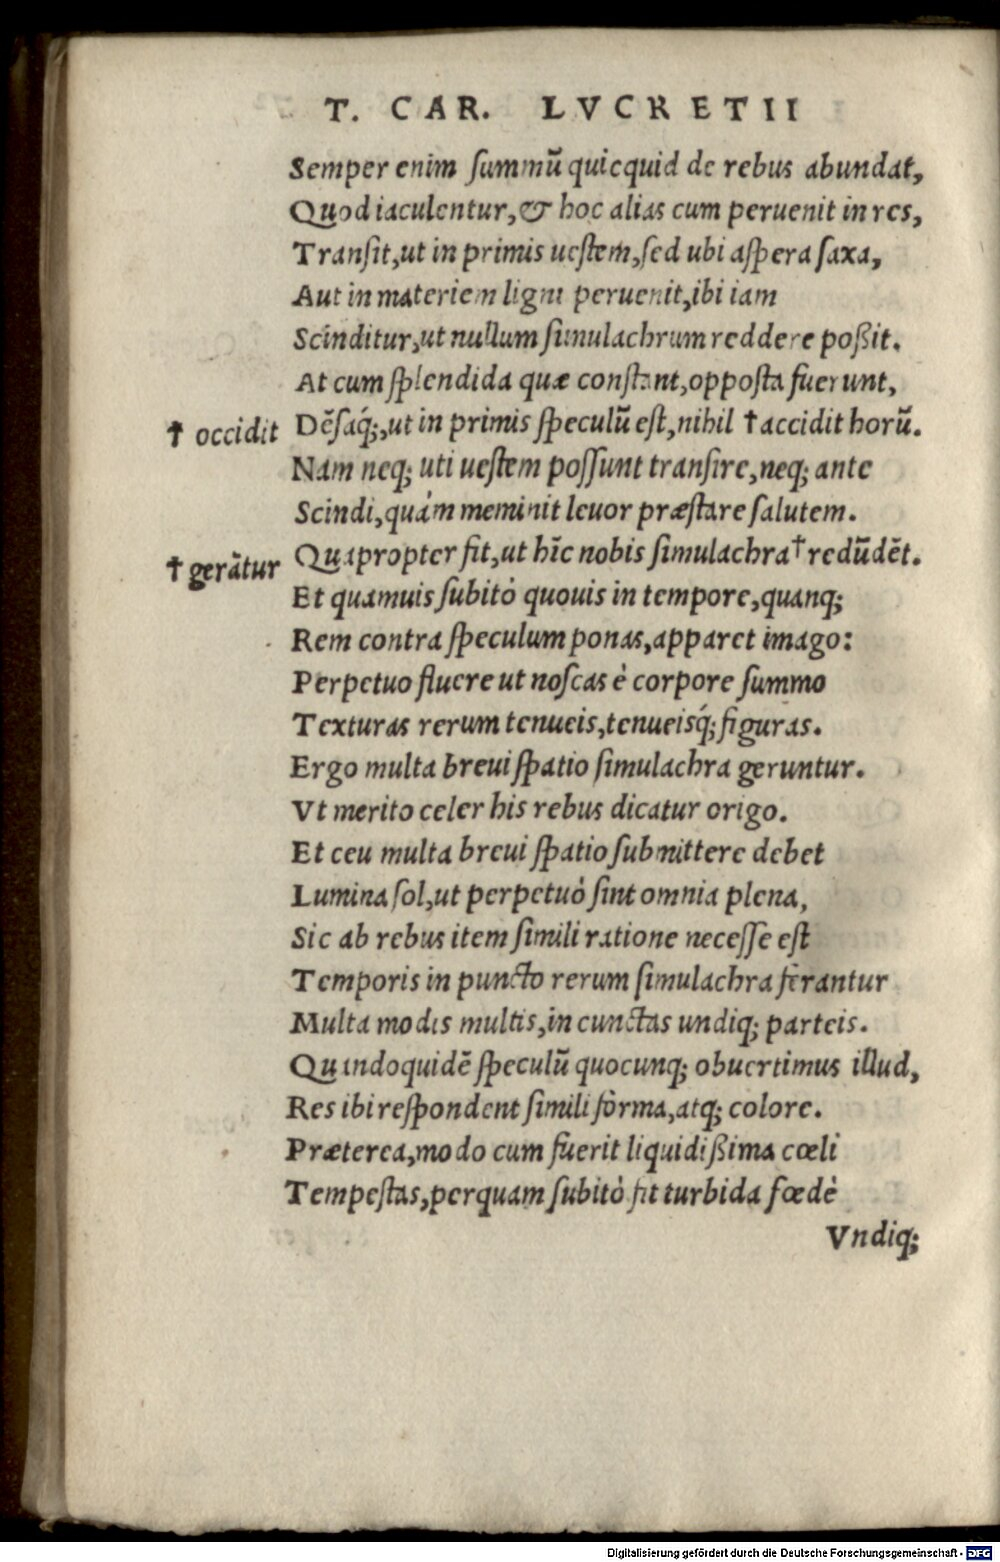 T. CAR. LVCRETII
Semper enim ſummū quicquid de rebus abundat,
Quod iaculentur, & hoc alias cum peruenit in res,
Tranſit, ut in primis ueſtem, ſed ubi aſpera ſaxa,
Aut in materiem ligni peruenit, ibi iam
Scinditur, ut nullum ſimulachrum reddere poßit.
At cum ſplendida quæ conſtant, oppoſta fuerunt,
† occidit Dēſaq́;, ut in primis ſpeculū eſt, nihil † accidit horū.
Nam neq; uti ueſtem poſſunt tranſire, neq; ante
Scindi, quàm meminit leuor præſtare ſalutem.
† gerātur Quapropter fit, ut hīc nobis ſimulachra † redūdēt.
Et quamuis ſubitò quouis in tempore, quanq;
Rem contra ſpeculum ponas, apparet imago:
Perpetuo fluere ut noſcas è corpore ſummo
Texturas rerum tenueis, tenueisq́; figuras.
Ergo multa breui ſpatio ſimulachra geruntur.
Vt merito celer his rebus dicatur origo.
Et ceu multa breui ſpatio ſubmittere debet
Lumina ſol, ut perpetuò ſint omnia plena,
Sic ab rebus item ſimili ratione neceſſe eſt
Temporis in puncto rerum ſimulachra ferantur
Multa modis multis, in cunctas undiq; parteis.
Quandoquidē ſpeculū quocunq; obuertimus illud,
Res ibi reſpondent ſimili forma, atq; colore.
Præterea, modo cum fuerit liquidißima cœli
Tempeſtas, perquam ſubitò fit turbida fœdè
Vndiq;
Digitalisierung gefördert durch die Deutsche Forschungsgemeinschaft - DFG